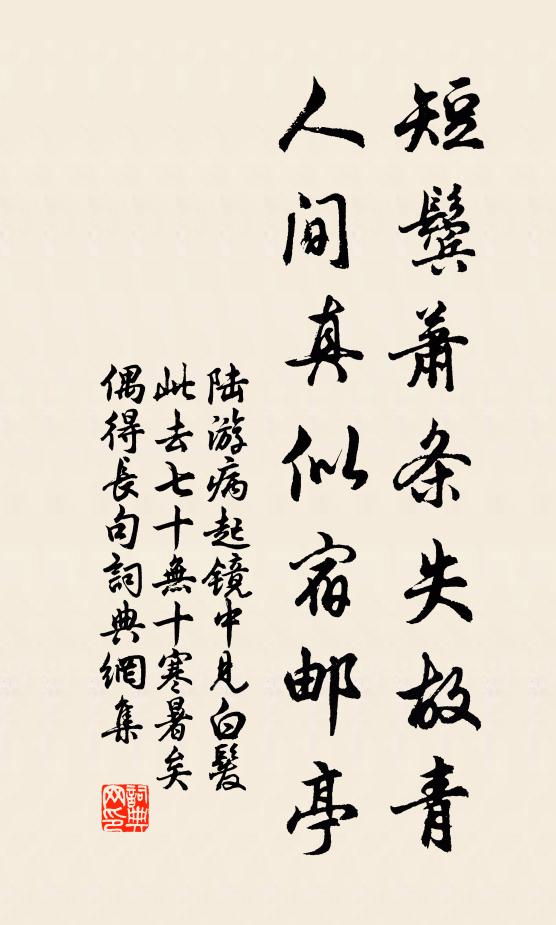 短鬓萧条失故青
人间真似宿邮亭
陆游病起镜中见白髮
此去七十無十寒暑矣
偶得長句詞典網集
詞典
网印